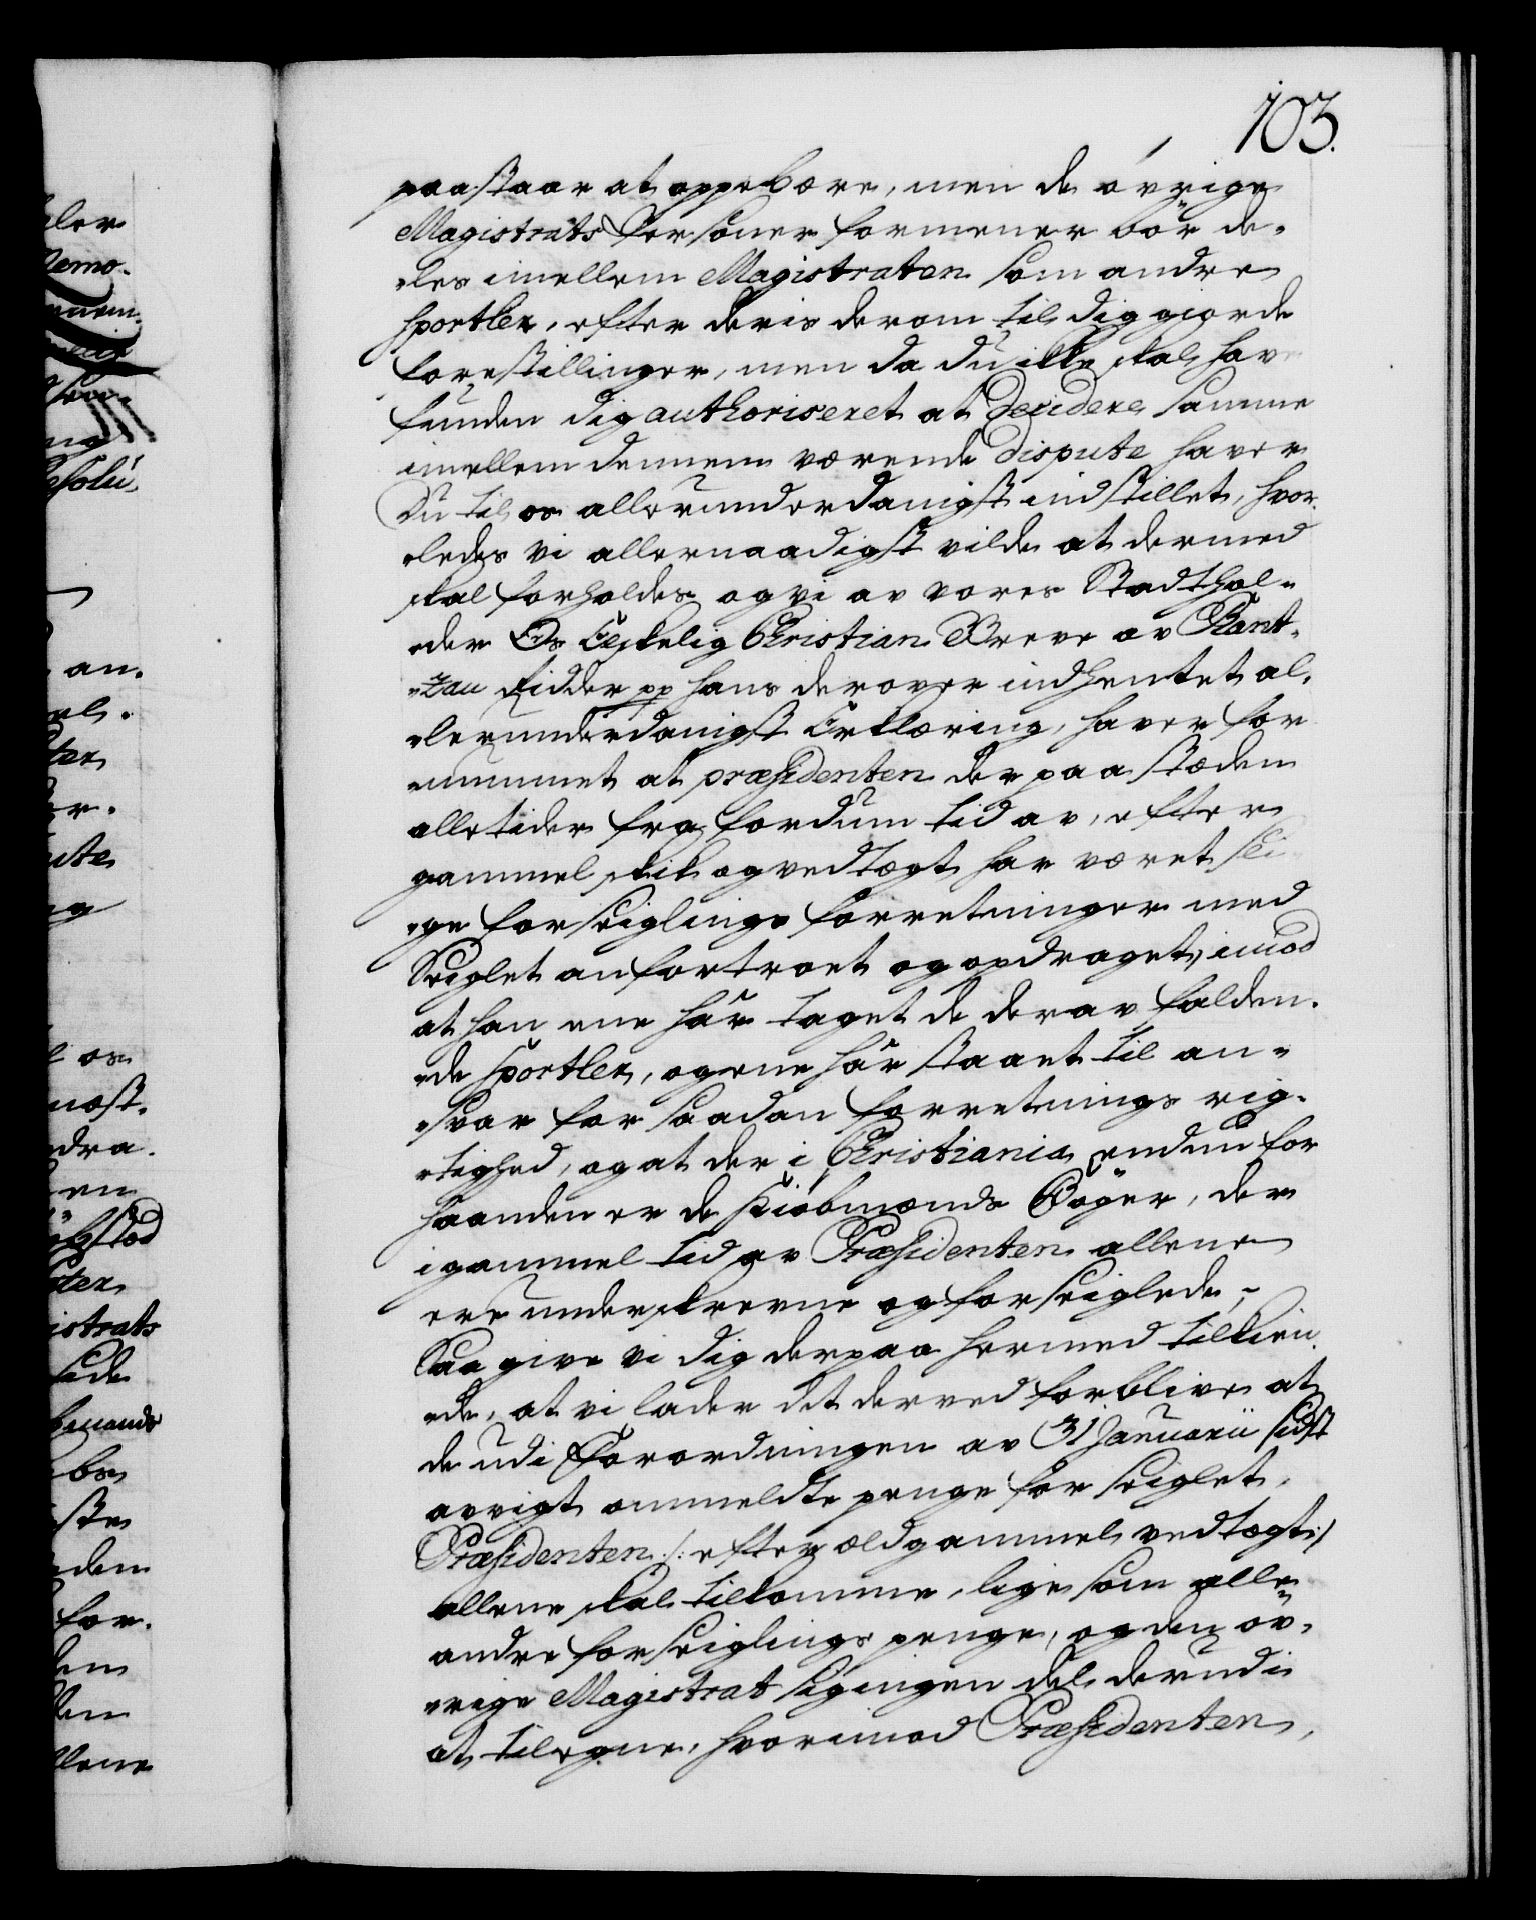 103.
paastaar at oppebære, men de övrige
Magistrats Personer formener bör de-
-les imellem Magistraten som andre
Sportler, efter deris derom til dig giorde
forestillinger, men da du ikke skal have
funden dig authoriseret at decidere samme
imellem dennem værende dispute haver
Du til os allerunderdanigst indstillet, hvor-
-ledes vi allernaadigst vilde at dermed
skal forholdes og vi av vores Stadthol-
-der Os Elskelig Christian Greve av Rant-
-zau Ridder pp hans derover indhentet al-
-lerunderdanigst Erklæring, haver for
-nummet at præsidenten der paa stæden
alletider fra fordum tid av, efter
gammel skik og vedtægt har været sli
-ge forseiglings forretninger med
Seiglet anfortroet og opdraget, imod
at han ene har taget de derav falden-
-de Sportler, og ene har staaet til an-
-svar for saadan forretnings rig-
-tighed, og at der i Christiania endnu for
haanden er de Kiöbmænds Böger, der
i gammel tid av Præsidenten allene
ere underskrevne og forseiglede,-
Saa give vi dig derpaa hermed tilkien-
-de, at vi lader det derved forblive at
de udi Forordningen av 31 Januarii sidst
avvigt ommeldte penge for seiglet,
Præsidenten /: efter ældgammel vedtægt :/
allene skal tilkomme, lige som alle
andre forseiglings penge, og den öv-
-rige Magistrat sig ingen del derudi
at tilegne, hvorimod Præsidenten,